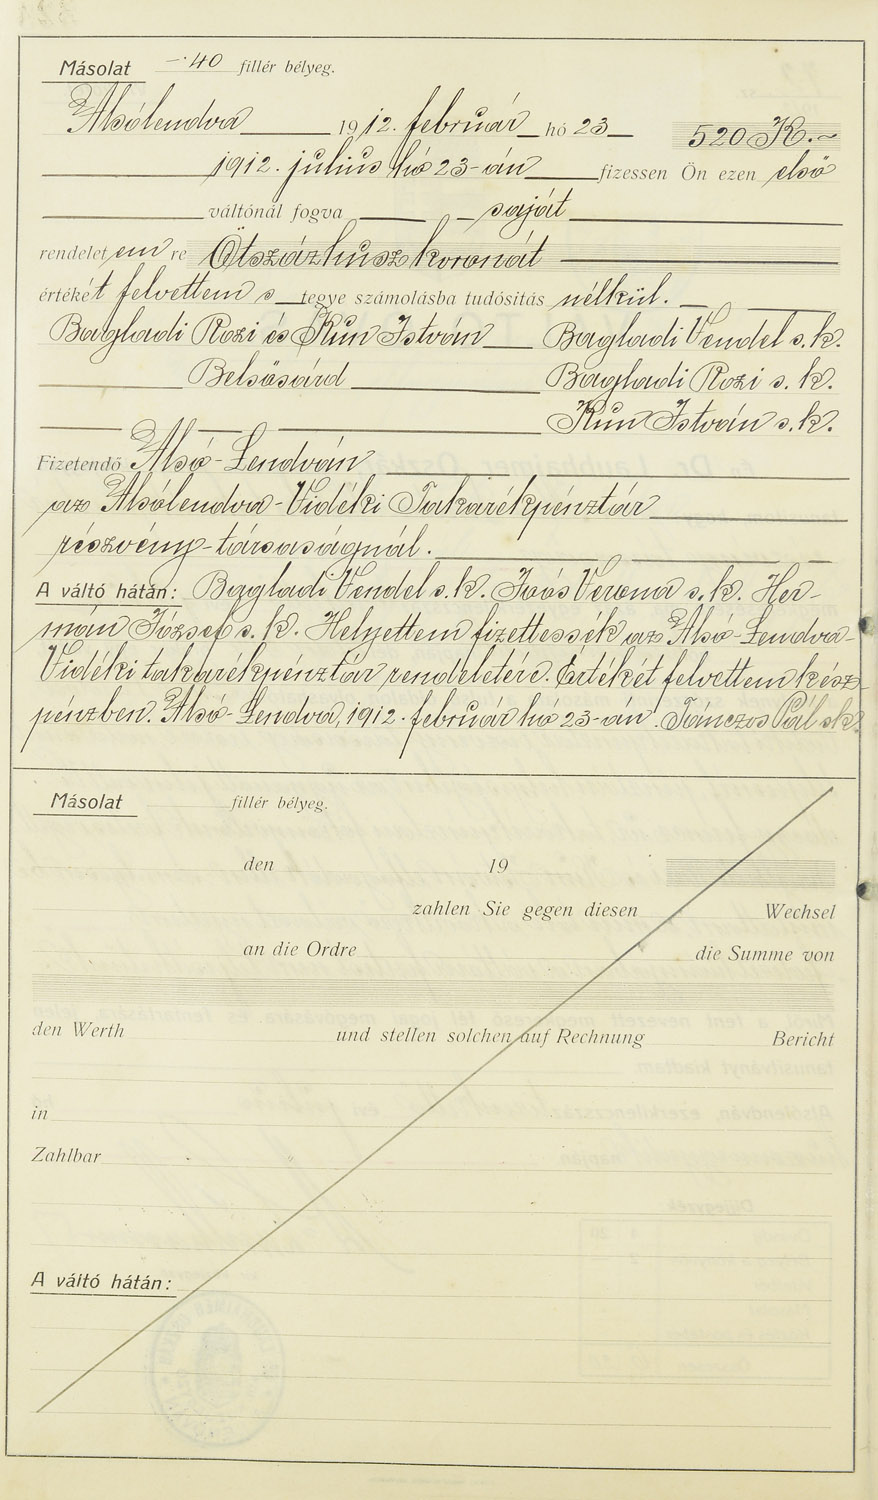 Másolat -·40 fillér bélyeg.
Alsólendva 1912. február hó 23 520 K.~
1912. július hó 23-án fizessen Ön ezen első
váltónál fogva saját
rendelet em re Ötszázhusz koronát
értékét felvettem s tegye számolásba tudósitás nélkül.
Bagladi Rozi és Kun István Bagladi Vendel s. k.
Belsősárd Bagladi Rozi s. k.
Kun István s. k.
Fizetendő Alsó-Lendván
az Alsólendva-Vidéki Takarékpénztár
részvény-társaságnál.
A váltó hátán: Bagladi Vendel s. k. Soós Verona s. k. Her-
mán József s. k. Helyettem fizettessék az Alsó-Lendva-
Vidéki takarékpénztár rendeletére. Értékét felvettem kész-
pénzben. Alsó-Lendva, 1912. február hó 23-án. Tánczos Pál sk.
Másolat fillér bélyeg.
den 19
zahlen Sie gegen diesen Wechsel
an die Ordre die Summe von
den Werth und stellen solchen auf Rechnung Bericht
in
Zahlbar
A váltó hátán: